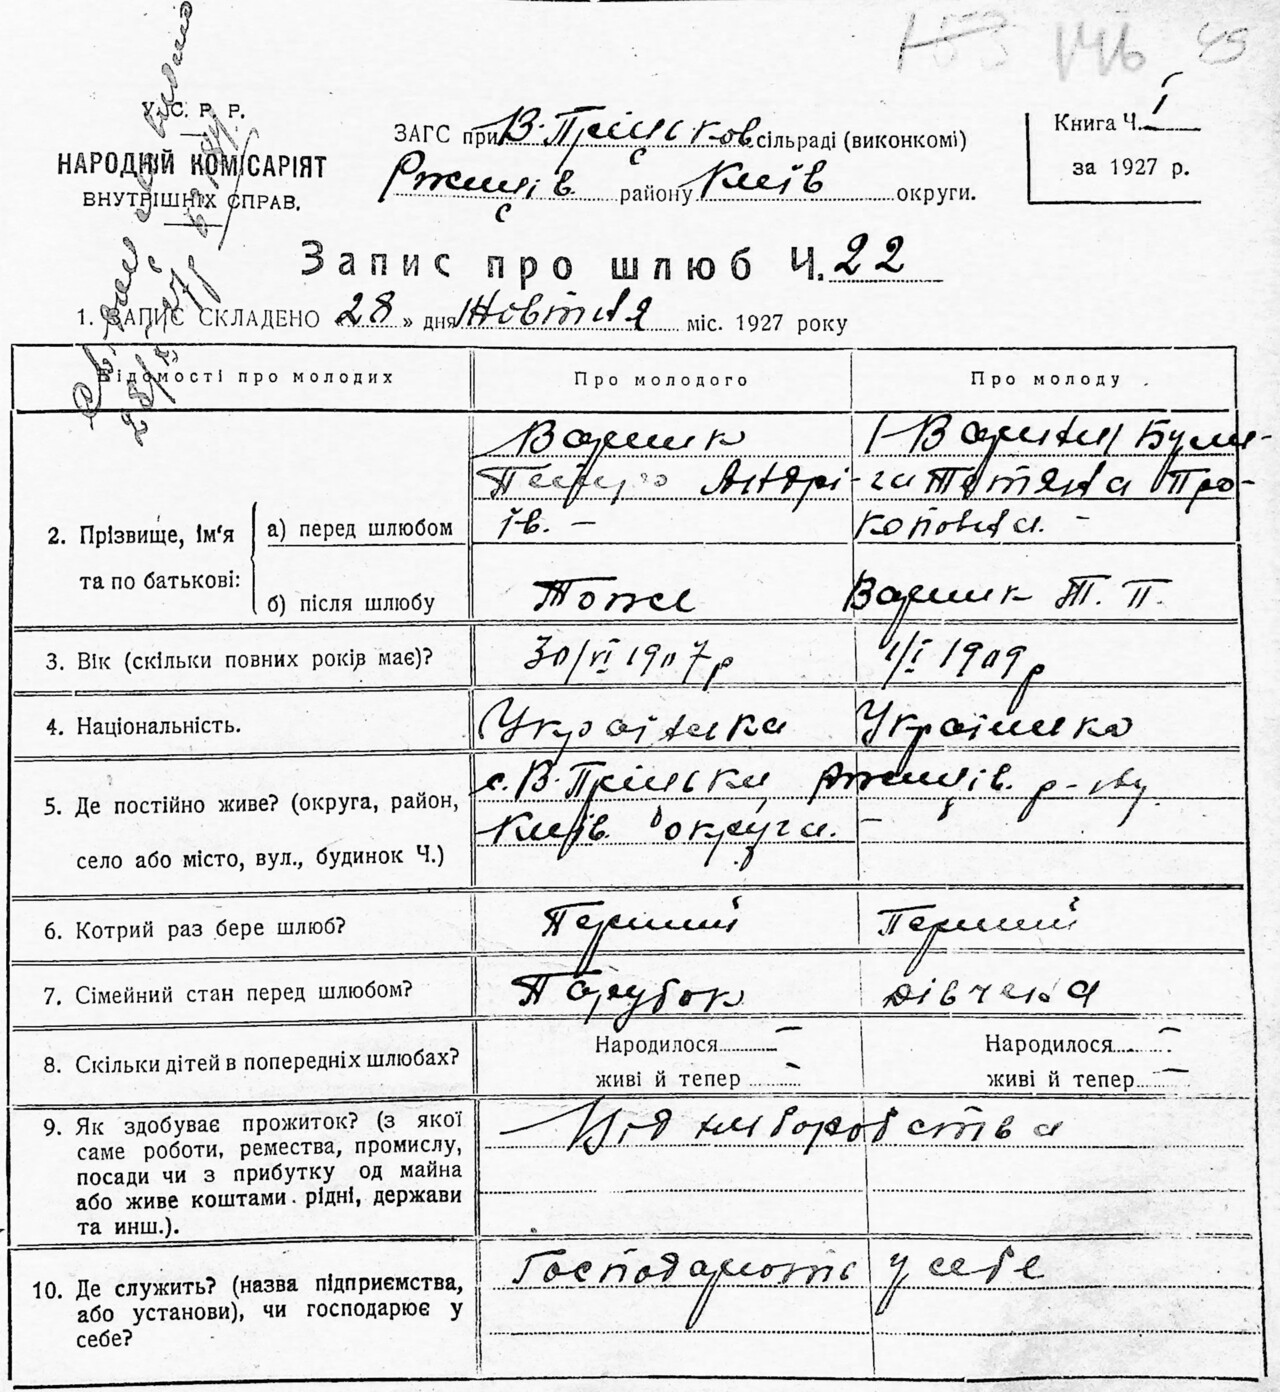 146 45
У. С. Р. Р.
НАРОДНІЙ КОМІСАРІЯТ
ВНУТРІШНІХ СПРАВ.
ЗАГС при В. Пріцьков сільраді (виконкомі)
Ржищів. району Київ округи.
Книга Ч. I
за 1927 р.
Запис про шлюб Ч. 22
1. ЗАПИС СКЛАДЕНО «28» дня Жовтня міс. 1927 року
Відомості про молодих Про молодого Про молоду
2. Прізвище, ім'я та по батькові:
а) перед шлюбом
Варник
Петро Андрі-
їв. –
Були-
га Тетяна Про-
коповна. –
б) після шлюбу Тоже Варник Т. П.
3. Вік (скільки повних років має)? 30/VI 1907 р 1/I 1909 р
4. Національність. Українка Українка
5. Де постійно живе? (округа, район,
село або місто, вул., будинок Ч.)
с. В. Пріцьки, Ржищів. р-ну
Київ. округа. –
6. Котрий раз бере шлюб? Перший Перший
7. Сімейний стан перед шлюбом? Парубок дівчена
8. Скільки дітей в попередніх шлюбах?
Народилося – Народилося –
живі й тепер – живі й тепер –
9. Як здобуває прожиток? (з якої
саме роботи, ремества, промислу,
посади чи з прибутку од майна
або живе коштами рідні, держави
та инш.).
Від хліборобства
10. Де служить? (назва підприємства,
або установи), чи господарює у
себе?
Господарють у себе